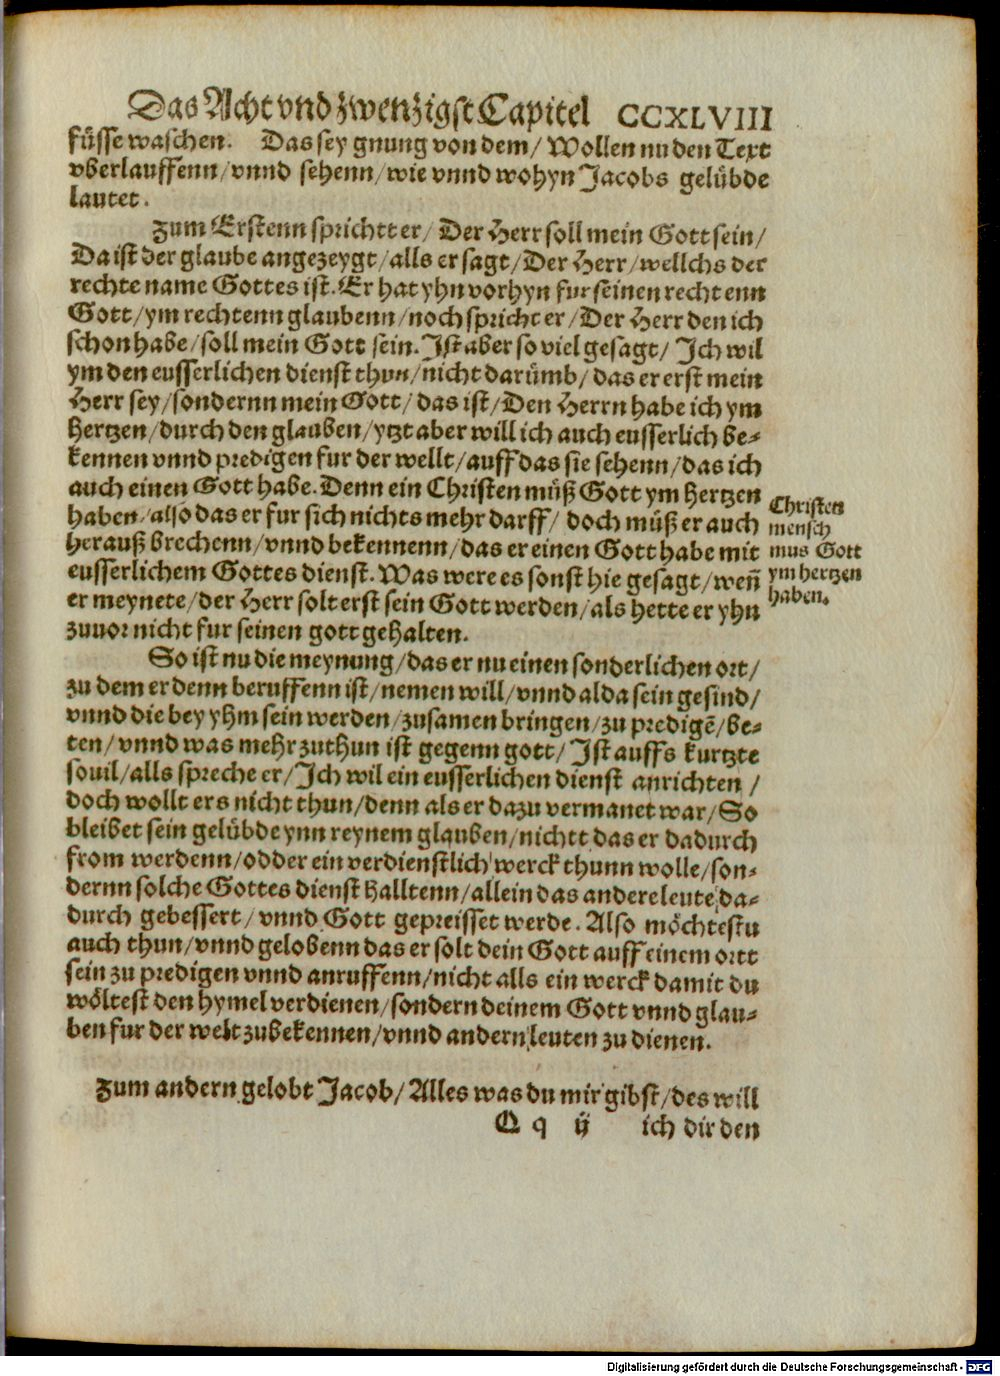 Das Acht vnd zwenzigst Capitel CCXLVIII
füsse waschen. Das sey gnung von dem/ Wollen nu den Text
vberlauffenn/vnnd sehenn/wie vnnd wohyn Jacobs gelübde
lautet.
Zum Erstenn sprichtt er/ Der Herr soll mein Gott sein/
Da ist der glaube angezeygt/alls er sagt/Der Herr/wellchs der
rechte name Gottes ist. Er hat yhn vorhyn fur seinen rechtenn
Gott/ym rechtenn glaubenn/noch spricht er/Der Herr den ich
schon habe/soll mein Gott sein. Ist aber so viel gesagt/ Ich wil
ym den eusserlichen dienst thun/nicht darümb/das er erst mein
Herr sey/sondernn mein Gott/das ist/Den Herrn habe ich ym
hertzen/durch den glauben/ytzt aber will ich auch eusserlich be-
kennen vnnd predigen fur der wellt/auff das sie sehenn/das ich
auch einen Gott habe. Denn ein Christen müß Gott ym hertzen
haben/also das er fur sich nichts mehr darff/ doch müß er auch
herauß brechenn/vnnd bekennenn/das er einen Gott habe mit
eusserlichem Gottes dienst. Was were es sonst hie gesagt/weñ
er meynete/der Herr solt erst sein Gott werden/als hette er yhn
zuuor nicht fur seinen gott gehalten.
Christen
mensch
mus Gott
ym hertzen
haben.
So ist nu die meynung/das er nu einen sonderlichen ort/
zu dem er denn beruffenn ist/nemen will/vnnd alda sein gesind/
vnnd die bey yhm sein werden/zusamen bringen/zu predigē/be-
ten/vnnd was mehr zuthun ist gegenn gott/Ist auffs kurtzte
souil/alls spreche er/Ich wil ein eusserlichen dienst anrichten/
doch wollt ers nicht thun/denn als er dazu vermanet war/So
bleibet sein gelübde ynn reynem glauben/nichtt das er dadurch
from werdenn/odder ein verdienstlich werck thunn wolle/son-
dernn solche Gottes dienst halltenn/allein das andere leute da-
durch gebessert/vnnd Gott gepreisset werde. Also möchtestu
auch thun/vnnd gelobenn das er solt dein Gott auff einem ortt
sein zu predigen vnnd anruffenn/nicht alls ein werck damit du
wöltest den hymel verdienen/sondern deinem Gott vnnd glau-
ben fur der welt zubekennen/vnnd andern leuten zu dienen.
Zum andern gelobt Jacob/Alles was du mir gibst/des will
Q q ij ich dir den
Digitalisierung gefördert durch die Deutsche Forschungsgemeinschaft - DFG